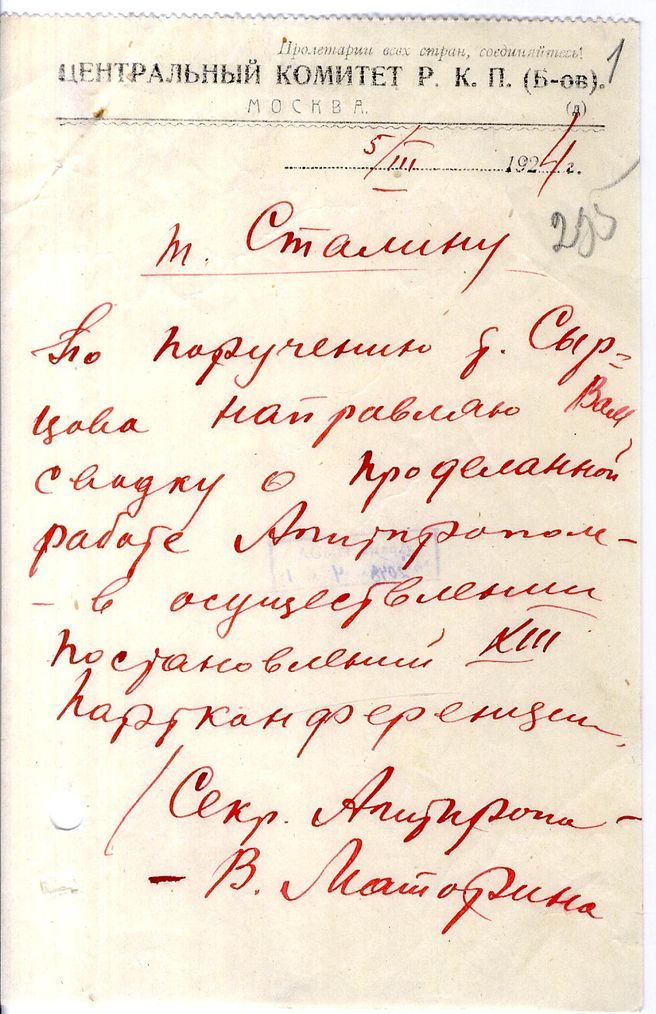 Пролетарии всех стран, соединяйтесь!
1
ЦЕНТРАЛЬНЫЙ КОМИТЕТ Р. К. П. (Б-ов).
МОСКВА.
(д)
5/III 1924 г.
235
т. Сталину
По поручению т. Сыр-
цова направляю Вам
сводку о проделанной
работе Агитпропом -
- в осуществлении
постановлений XIII
партконференции.
Секр. Агитпропа -
- В. Маторина